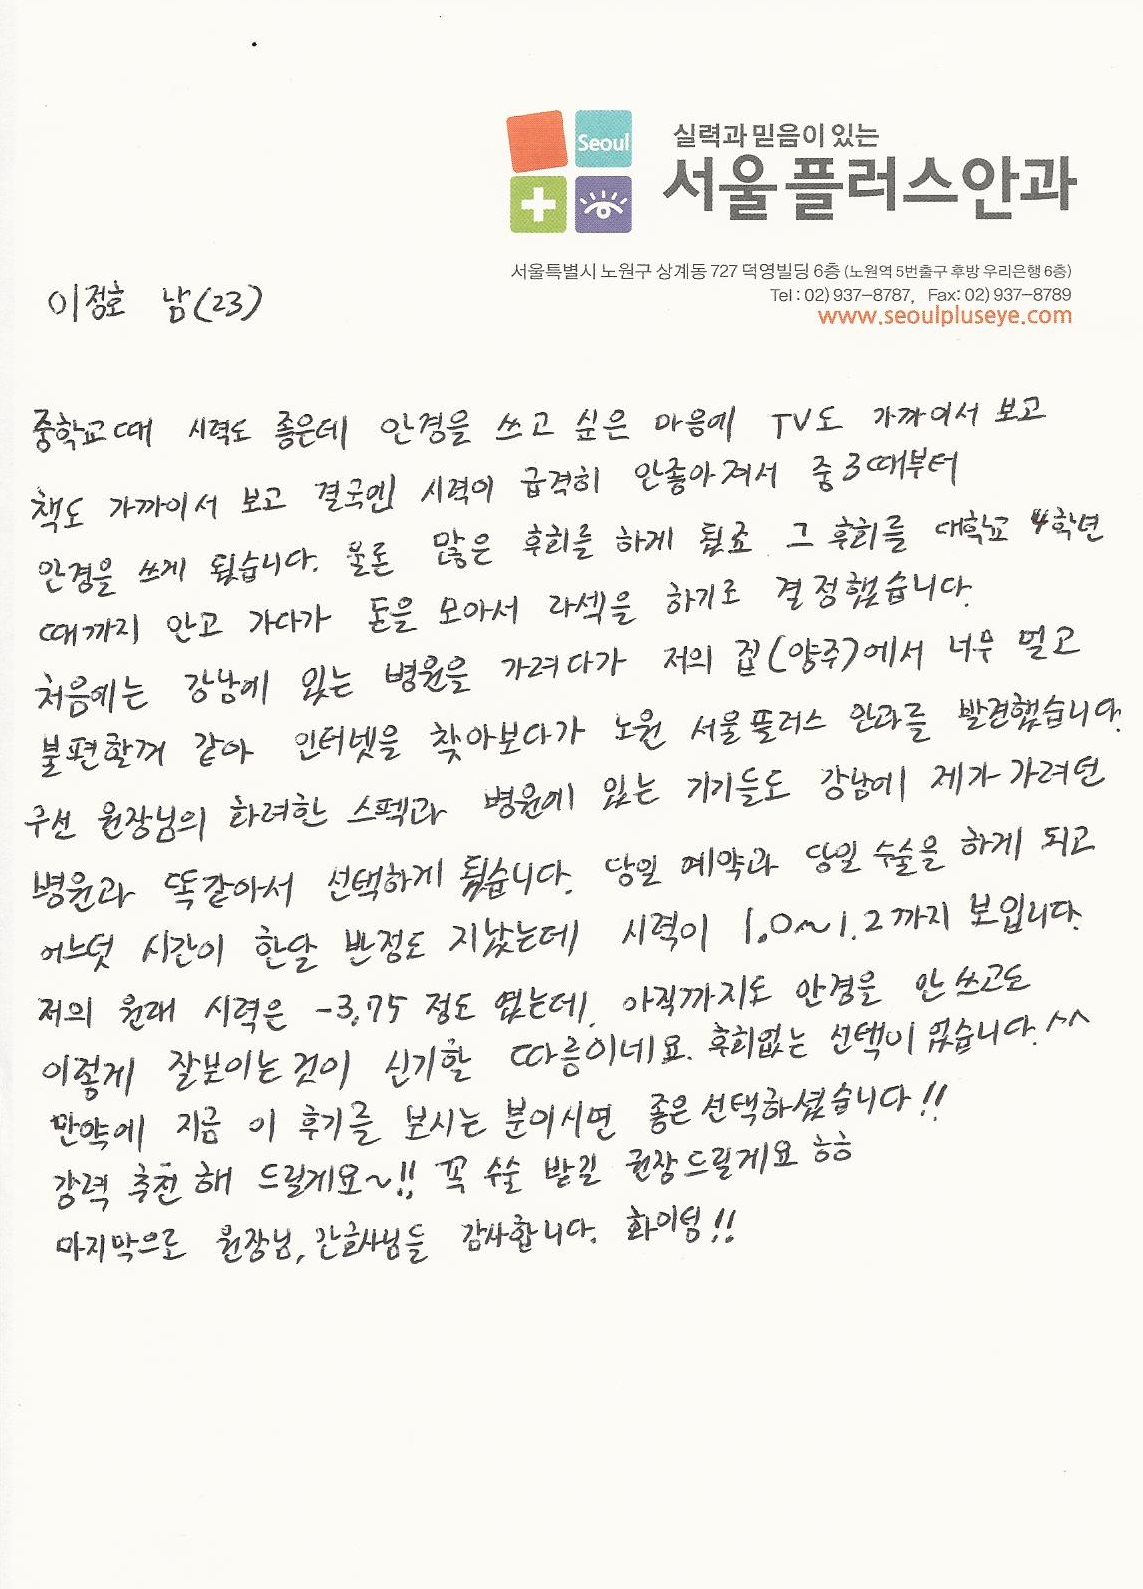 Seoul
실력과 믿음이 있는
서울플러스안과
서울특별시 노원구 상계동 727 덕영빌딩 6층 (노원역 5번출구 후방 우리은행 6층)
Tel : 02) 937-8787, Fax: 02) 937-8789
www.seoulpluseye.com
이정호 남(23)
중학교때 시력도 좋은데 안경을 쓰고 싶은 마음에 TV도 가까이서 보고
책도 가까이서 보고 결국엔 시력이 급격히 안좋아져서 중3때부터
안경을 쓰게 됬습니다. 물론 많은 후회를 하게 됬죠 그 후회를 대학교 4학년
때까지 안고 가다가 돈을 모아서 라섹을 하기로 결정했습니다.
처음에는 강남에 있는 병원을 가려다가 저의 집(양주)에서 너무 멀고
불편할꺼 같아 인터넷을 찾아보다가 노원 서울플러스 안과를 발견했습니다.
우선 원장님의 화려한 스펙과 병원에 있는 기기들도 강남에 제가 가려던
병원과 똑같아서 선택하게 됬습니다. 당일 예약과 당일 수술을 하게 되고
어느덧 시간이 한달 반정도 지났는데 시력이 1.0~1.2까지 보입니다.
저의 원래 시력은 -3.75 정도 였는데, 아직까지도 안경을 안쓰고도
이렇게 잘보이는것이 신기할 따름이네요. 후회없는 선택이 었습니다.^^
만약에 지금 이 후기를 보시는 분이시면 좋은선택하셨습니다!!
강력 추천 해 드릴게요~!! 꼭 수술 받길 권장드릴게요 ㅎㅎ
마지막으로 원장님, 간호사님들 감사합니다. 화이팅!!